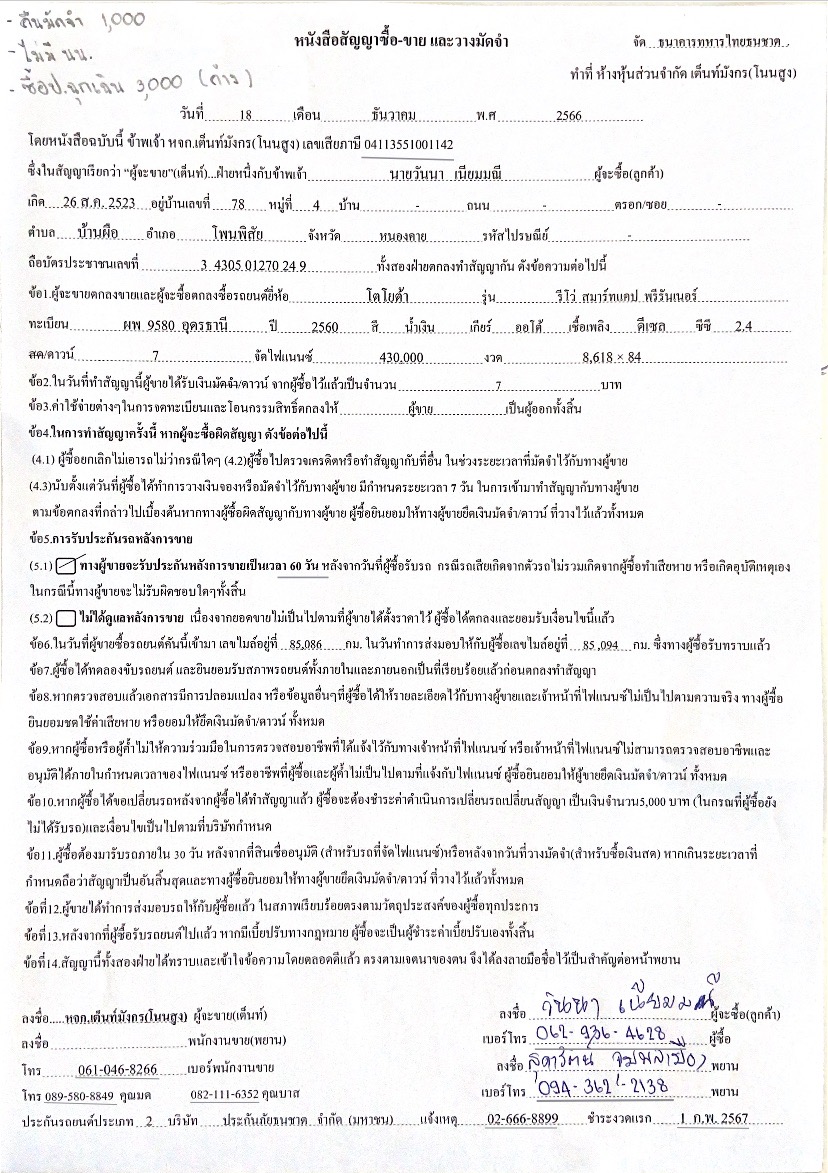 - คืนมัดจำ 1,000
- ไม่มี นน.
- ซื้อป.ฉุกเฉิน 3,000 (ค้าง)
หนังสือสัญญาซื้อ-ขาย และวางมัดจำ
จัด ธนาคารทหารไทยธนชาต
ทำที่ ห้างหุ้นส่วนจำกัด เต็นท์มังกร(โนนสูง)
วันที่ 18 เดือน ธันวาคม พ.ศ 2566
โดยหนังสือฉบับนี้ ข้าพเจ้า หจก.เต็นท์มังกร(โนนสูง) เลขเสียภาษี 04113551001142
ซึ่งในสัญญาเรียกว่า "ผู้จะขาย"(เต็นท์)...ฝ่ายหนึ่งกับข้าพเจ้า นายวันนา เนียมมณี ผู้จะซื้อ(ลูกค้า)
เกิด 26 ส.ค. 2523 อยู่บ้านเลขที่ 78 หมู่ที่ 4 บ้าน - ถนน - ตรอก/ซอย -
ตำบล บ้านผือ อำเภอ โพนพิสัย จังหวัด หนองคาย รหัสไปรษณีย์ -
ถือบัตรประชาชนเลขที่ 3 4305 01270 24 9 ทั้งสองฝ่ายตกลงทำสัญญากัน ดังข้อความต่อไปนี้
ข้อ1.ผู้จะขายตกลงขายและผู้จะซื้อตกลงซื้อรถยนต์ยี่ห้อ โตโยต้า รุ่น รีโว่ สมาร์ทแคป พรีรันเนอร์
ทะเบียน ผพ 9580 อุดรธานี ปี 2560 สี น้ำเงิน เกียร์ ออโต้ เชื้อเพลิง ดีเซล ซีซี 2.4
สด/ดาวน์ 7 จัดไฟแนนซ์ 430,000 งวด 8,618 × 84
ข้อ2.ในวันที่ทำสัญญานี้ผู้ขายได้รับเงินมัดจำ/ดาวน์ จากผู้ซื้อไว้แล้วเป็นจำนวน 7 บาท
ข้อ3.ค่าใช้จ่ายต่างๆในการจดทะเบียนและโอนกรรมสิทธิ์ตกลงให้ ผู้ขาย เป็นผู้ออกทั้งสิ้น
ข้อ4.ในการทำสัญญาครั้งนี้ หากผู้จะซื้อผิดสัญญา ดังข้อต่อไปนี้
(4.1) ผู้ซื้อยกเลิกไม่เอารถไม่ว่ากรณีใดๆ (4.2)ผู้ซื้อไปตรวจเครดิตหรือทำสัญญากับที่อื่น ในช่วงระยะเวลาที่มัดจำไว้กับทางผู้ขาย
(4.3)นับตั้งแต่วันที่ผู้ซื้อได้ทำการวางเงินจองหรือมัดจำไว้กับทางผู้ขาย มีกำหนดระยะเวลา 7 วัน ในการเข้ามาทำสัญญากับทางผู้ขาย
ตามข้อตกลงที่กล่าวไปเบื้องต้นหากทางผู้ซื้อผิดสัญญากับทางผู้ขาย ผู้ซื้อยินยอมให้ทางผู้ขายยึดเงินมัดจำ/ดาวน์ ที่วางไว้แล้วทั้งหมด
ข้อ5.การรับประกันรถหลังการขาย
(5.1) ทางผู้ขายจะรับประกันหลังการขายเป็นเวลา 60 วัน หลังจากวันที่ผู้ซื้อรับรถ กรณีรถเสียเกิดจากตัวรถไม่รวมเกิดจากผู้ซื้อทำเสียหาย หรือเกิดอุบัติเหตุเอง
ในกรณีนี้ทางผู้ขายจะไม่รับผิดชอบใดๆทั้งสิ้น
(5.2) ไม่ได้ดูแลหลังการขาย เนื่องจากยอดขายไม่เป็นไปตามที่ผู้ขายได้ตั้งราคาไว้ ผู้ซื้อได้ตกลงและยอมรับเงื่อนไขนี้แล้ว
ข้อ6.ในวันที่ผู้ขายซื้อรถยนต์คันนี้เข้ามา เลขไมล์อยู่ที่ 85,086 กม. ในวันทำการส่งมอบให้กับผู้ซื้อเลขไมล์อยู่ที่ 85,094 กม. ซึ่งทางผู้ซื้อรับทราบแล้ว
ข้อ7.ผู้ซื้อได้ทดลองขับรถยนต์ และยินยอมรับสภาพรถยนต์ทั้งภายในและภายนอกเป็นที่เรียบร้อยแล้วก่อนตกลงทำสัญญา
ข้อ8.หากตรวจสอบแล้วเอกสารมีการปลอมแปลง หรือข้อมูลอื่นๆที่ผู้ซื้อได้ให้รายละเอียดไว้กับทางผู้ขายและเจ้าหน้าที่ไฟแนนซ์ไม่เป็นไปตามความจริง ทางผู้ซื้อ
ยินยอมชดใช้ค่าเสียหาย หรือยอมให้ยึดเงินมัดจำ/ดาวน์ ทั้งหมด
ข้อ9.หากผู้ซื้อหรือผู้ค้ำไม่ให้ความร่วมมือในการตรวจสอบอาชีพที่ได้แจ้งไว้กับทางเจ้าหน้าที่ไฟแนนซ์ หรือเจ้าหน้าที่ไฟแนนซ์ไม่สามารถตรวจสอบอาชีพและ
อนุมัติได้ภายในกำหนดเวลาของไฟแนนซ์ หรืออาชีพที่ผู้ซื้อและผู้ค้ำไม่เป็นไปตามที่แจ้งกับไฟแนนซ์ ผู้ซื้อยินยอมให้ผู้ขายยึดเงินมัดจำ/ดาวน์ ทั้งหมด
ข้อ10.หากผู้ซื้อได้ขอเปลี่ยนรถหลังจากผู้ซื้อได้ทำสัญญาแล้ว ผู้ซื้อจะต้องชำระค่าดำเนินการเปลี่ยนรถเปลี่ยนสัญญา เป็นเงินจำนวน5,000 บาท (ในกรณที่ผู้ซื้อยัง
ไม่ได้รับรถ)และเงื่อนไขเป็นไปตามที่บริษัทกำหนด
ข้อ11.ผู้ซื้อต้องมารับรถภายใน 30 วัน หลังจากที่สินเชื่ออนุมัติ (สำหรับรถที่จัดไฟแนนซ์)หรือหลังจากวันที่วางมัดจำ(สำหรับซื้อเงินสด) หากเกินระยะเวลาที่
กำหนดถือว่าสัญญาเป็นอันสิ้นสุดและทางผู้ซื้อยินยอมให้ทางผู้ขายยึดเงินมัดจำ/ดาวน์ ที่วางไว้แล้วทั้งหมด
ข้อที่12.ผู้ขายได้ทำการส่งมอบรถให้กับผู้ซื้อแล้ว ในสภาพเรียบร้อยตรงตามวัตถุประสงค์ของผู้ซื้อทุกประการ
ข้อที่13.หลังจากที่ผู้ซื้อรับรถยนต์ไปแล้ว หากมีเบี้ยปรับทางกฎหมาย ผู้ซื้อจะเป็นผู้ชำระค่าเบี้ยปรับเองทั้งสิ้น
ข้อที่14.สัญญานี้ทั้งสองฝ่ายได้ทราบและเข้าใจข้อความโดยตลอดดีแล้ว ตรงตามเจตนาของตน จึงได้ลงลายมือชื่อไว้เป็นสำคัญต่อหน้าพยาน
ลงชื่อ.....หจก.เต็นท์มังกร(โนนสูง) ผู้จะขาย(เต็นท์) ลงชื่อ วันนา เนียมมณี ผู้จะซื้อ(ลูกค้า)
ลงชื่อ พนักงานขาย(พยาน) เบอร์โทร 062-936-4628 ผู้ซื้อ
โทร 061-046-8266 เบอร์พนักงานขาย ลงชื่อ สุดารัตน์ พยาน
โทร 089-580-8849 คุณมด 082-111-6352 คุณบาส เบอร์โทร 094-362-2138 พยาน
ประกันรถยนต์ประเภท 2 บริษัท ประกันภัยธนชาต จำกัด (มหาชน) แจ้งเหตุ 02-666-8899 ชำระงวดแรก 1 ก.พ. 2567